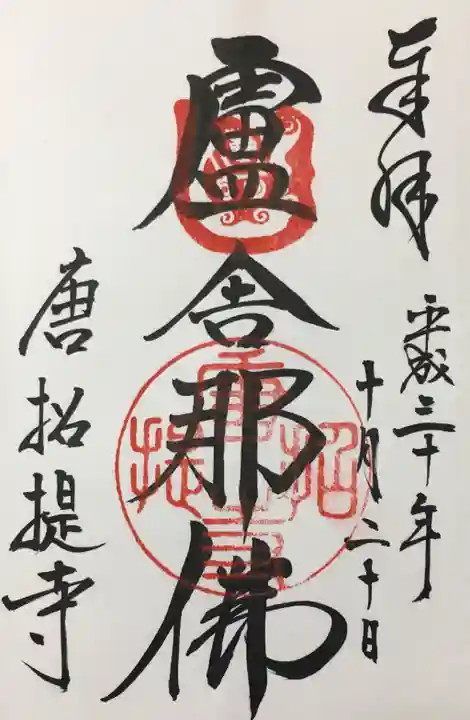 奉拝
平成三十年
十月二十日
盧舎那佛
唐招提寺